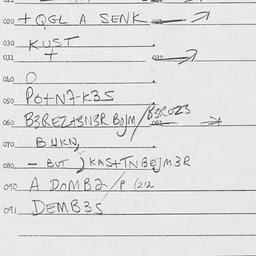 020 + QGL A SENK
030 KUST
031 +
040 O
050 POTN7-K3S
060 B3REZ+3N3R BOJM / B3ROZ3
070 BUKN,
080 - BUT ) KAS+TNBEJM3R
090 A DOMB2 /P 1212
091 DEMB3S